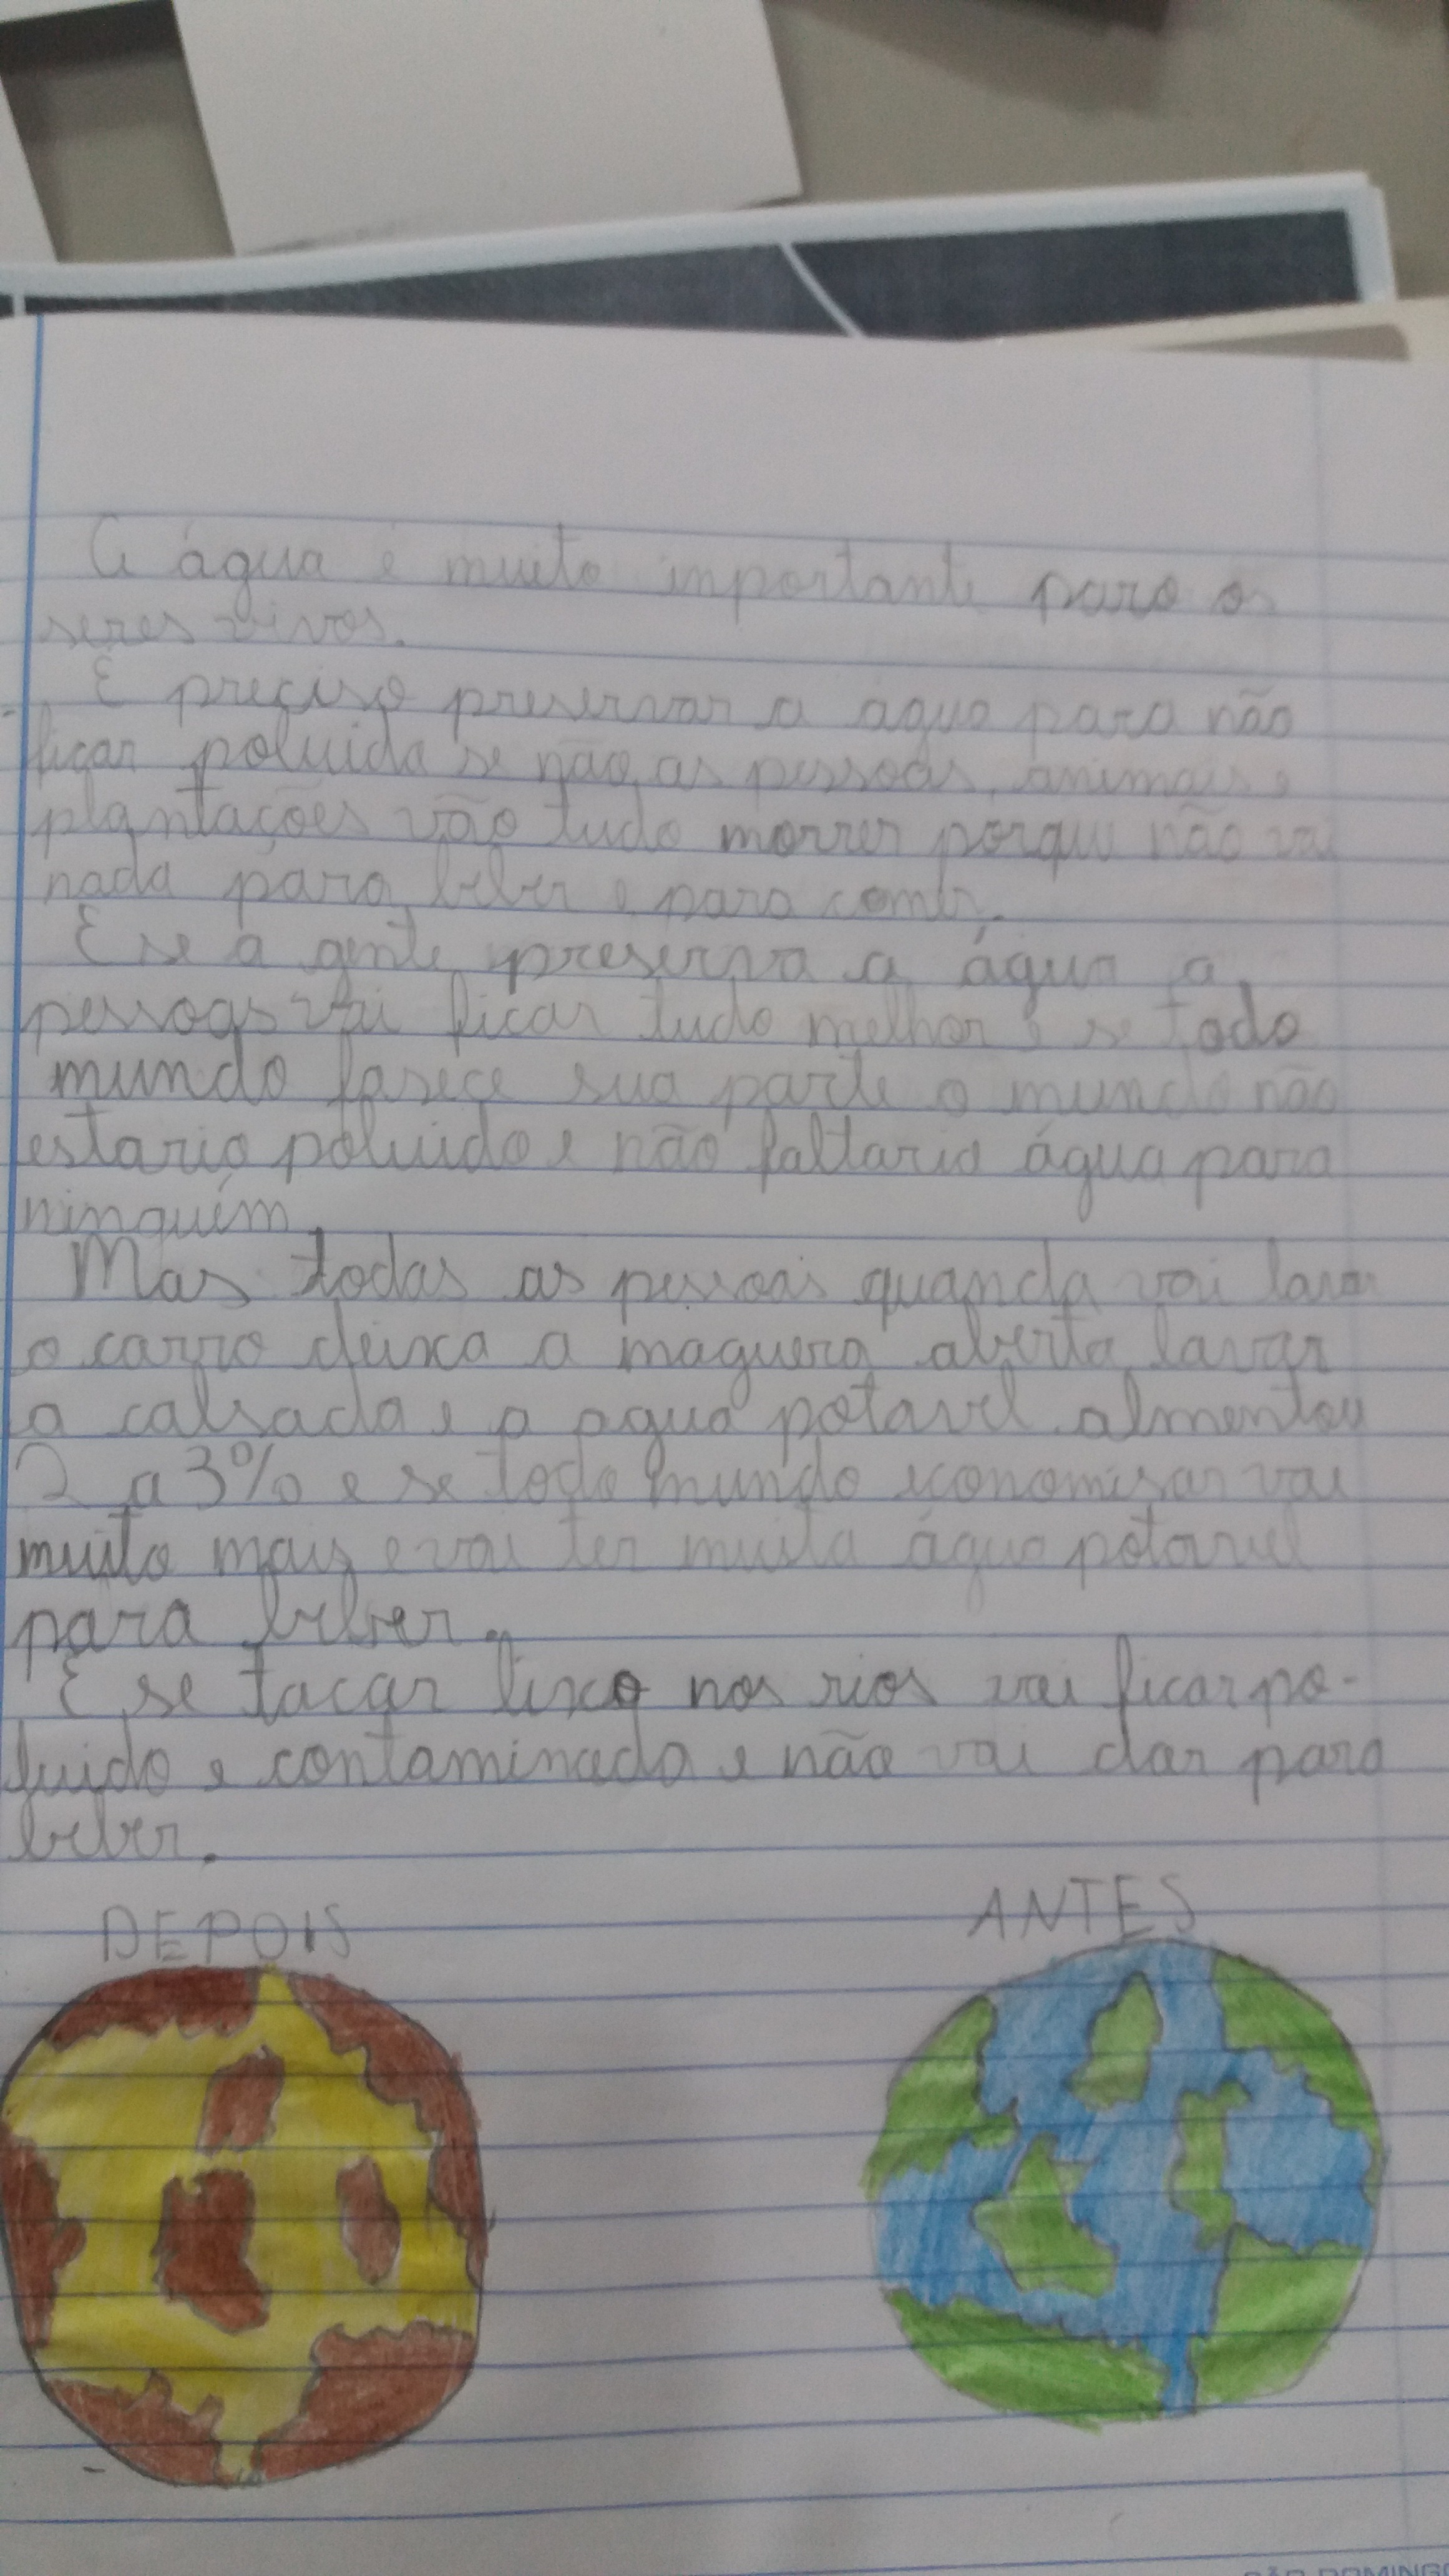 A água é muito importante para os
seres vivos.
É preciso preservar a água para não
ficar poluida se não as pessoas, animais e
plantações vão tudo morrer porque não vai
nada para beber e para comer.
E se a gente preserva a água a
pessoas vai ficar tudo melhor e se todo
mundo fasece sua parte o mundo não
estario poluido e não faltaria água para
ninguém.
Mas todas as pessoas quando vai lavar
o carro deixa a maguera aberta, lavar
a calsada e a agua potavel almentou
2 a 3% e se todo mundo economisar vai
muito mais e vai ter muita água potavel
para beber.
E se tacar lixo nos rios vai ficar po-
luido e contaminado e não vai dar para
beber.
DEPOIS ANTES
SÃO DOMING